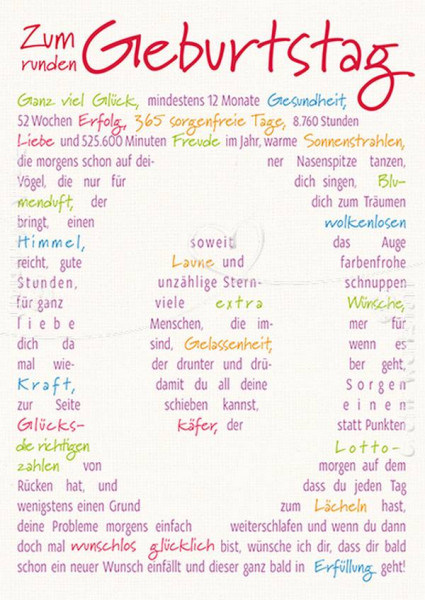 Zum
runden
Geburtstag
Ganz viel Glück, mindestens 12 Monate Gesundheit,
52 Wochen Erfolg, 365 sorgenfreie Tage, 8.760 Stunden
Liebe und 525.600 Minuten Freude im Jahr, warme Sonnenstrahlen,
die morgens schon auf dei- ner Nasenspitze tanzen,
Vögel, die nur für dich singen, Blu-
menduft, der dich zum Träumen
bringt, einen wolkenlosen
Himmel, soweit das Auge
reicht, gute Laune und farbenfrohe
Stunden, unzählige Stern- schnuppen
für ganz viele extra Wünsche,
liebe Menschen, die im- mer für
dich da sind, Gelassenheit, wenn es
mal wie- der drunter und drü- ber geht,
Kraft, damit du all deine Sorgen
zur Seite schieben kannst, einen
Glücks- käfer, der statt Punkten
die richtigen Lotto-
zahlen von morgen auf dem
Rücken hat, und dass du jeden Tag
wenigstens einen Grund zum Lächeln hast,
deine Probleme morgens einfach weiterschlafen und wenn du dann
doch mal wunschlos glücklich bist, wünsche ich dir, dass dir bald
schon ein neuer Wunsch einfällt und dieser ganz bald in Erfüllung geht!